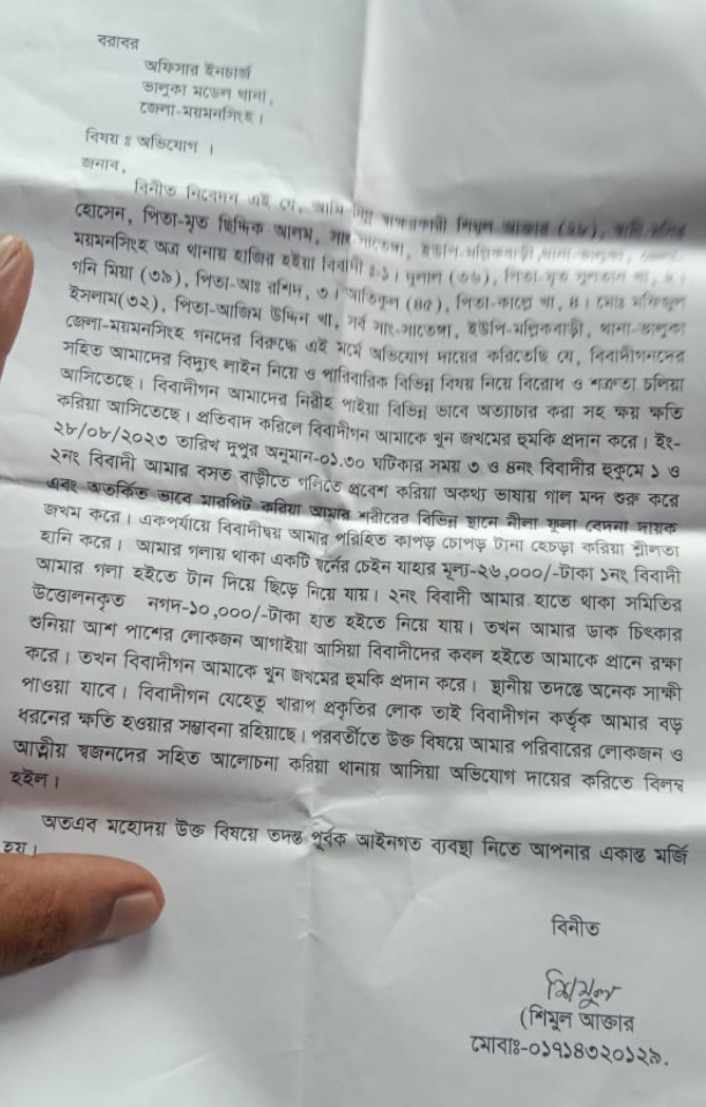 বরাবর
অফিসার ইনচার্জ
ভালুকা মডেল থানা,
জেলা-ময়মনসিংহ।
বিষয় ঃ অভিযোগ ।
জনাব,
বিনীত নিবেদন এই যে, আমি নিম্ন স্বাক্ষরকারী শিমুল আক্তার
হোসেন, পিতা-মৃত ছিদ্দিক আলম,
ময়মনসিংহ অত্র থানায় হাজির হইয়া বিবাদী ঃ-১। দুলাল (৩৬), পিতা-মৃত
গনি মিয়া (৩৯), পিতা-আঃ রশিদ, ৩। আতিকুল (৪৫), পিতা-কালো খা, ৪। মোঃ
ইসলাম(৩২), পিতা-আজিম উদ্দিন খা, সর্ব সাং-সাতেঙ্গা, ইউপি-মল্লিকবাড়ী, থানা-ভালুকা
জেলা-ময়মনসিংহ গনদের বিরুদ্ধে এই মর্মে অভিযোগ দায়ের করিতেছি যে, বিবাদীগনদের
সহিত আমাদের বিদ্যুৎ লাইন নিয়ে ও পারিবারিক বিভিন্ন বিষয় নিয়ে বিরোধ ও শত্রুতা চলিয়া
আসিতেছে। বিবাদীগন আমাদের নিরীহ পাইয়া বিভিন্ন ভাবে অত্যাচার করা সহ ক্ষয় ক্ষতি
করিয়া আসিতেছে। প্রতিবাদ করিলে বিবাদীগন আমাকে খুন জখমের হুমকি প্রদান করে। ইং-
২৮/০৮/২০২৩ তারিখ দুপুর অনুমান-০১.৩০ ঘটিকার সময় ৩ ও ৪নং বিবাদীর হুকুমে ১ ও
২নং বিবাদী আমার বসত বাড়ীতে গলিতে প্রবেশ করিয়া অকথ্য ভাষায় গাল মন্দ শুরু করে
এবং অতর্কিত ভাবে মারপিট করিয়া আমার শরীরের বিভিন্ন স্থানে নীলা ফুলা বেদনা দায়ক
জখম করে। একপর্যায়ে বিবাদীদ্বয় আমার পরিহিত কাপড় চোপড় টানা হেচড়া করিয়া শ্লীলতা
হানি করে। আমার গলায় থাকা একটি স্বর্নের চেইন যাহার মূল্য-২৬,০০০/-টাকা ১নং বিবাদী
আমার গলা হইতে টান দিয়ে ছিড়ে নিয়ে যায়। ২নং বিবাদী আমার হাতে থাকা সমিতির
উত্তোলনকৃত নগদ-১০,০০০/-টাকা হাত হইতে নিয়ে যায়। তখন আমার ডাক চিৎকার
শুনিয়া আশ পাশের লোকজন আগাইয়া আসিয়া বিবাদীদের কবল হইতে আমাকে প্রানে রক্ষা
করে। তখন বিবাদীগন আমাকে খুন জখমের হুমকি প্রদান করে। স্থানীয় তদন্তে অনেক সাক্ষী
পাওয়া যাবে। বিবাদীগন যেহেতু খারাপ প্রকৃতির লোক তাই বিবাদীগন কর্তৃক আমার বড়
ধরনের ক্ষতি হওয়ার সম্ভাবনা রহিয়াছে। পরবর্তীতে উক্ত বিষয়ে আমার পরিবারের লোকজন ও
আত্নীয় স্বজনদের সহিত আলোচনা করিয়া থানায় আসিয়া অভিযোগ দায়ের করিতে বিলম্ব
হইল।
অতএব মহোদয় উক্ত বিষয়ে তদন্ত পূর্বক আইনগত ব্যবস্থা নিতে আপনার একান্ত মর্জি
হয়।
বিনীত
শিমুল
(শিমুল আক্তার
মোবাঃ-০১৭১৪৩২০১২৯.